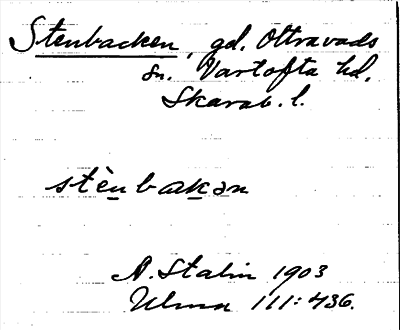 Stenbacken, gd. Ottravads
sn. Vartofta hd.
Skarab. l.
stènbakən
A. Stalin 1903
Ulma 111:436.